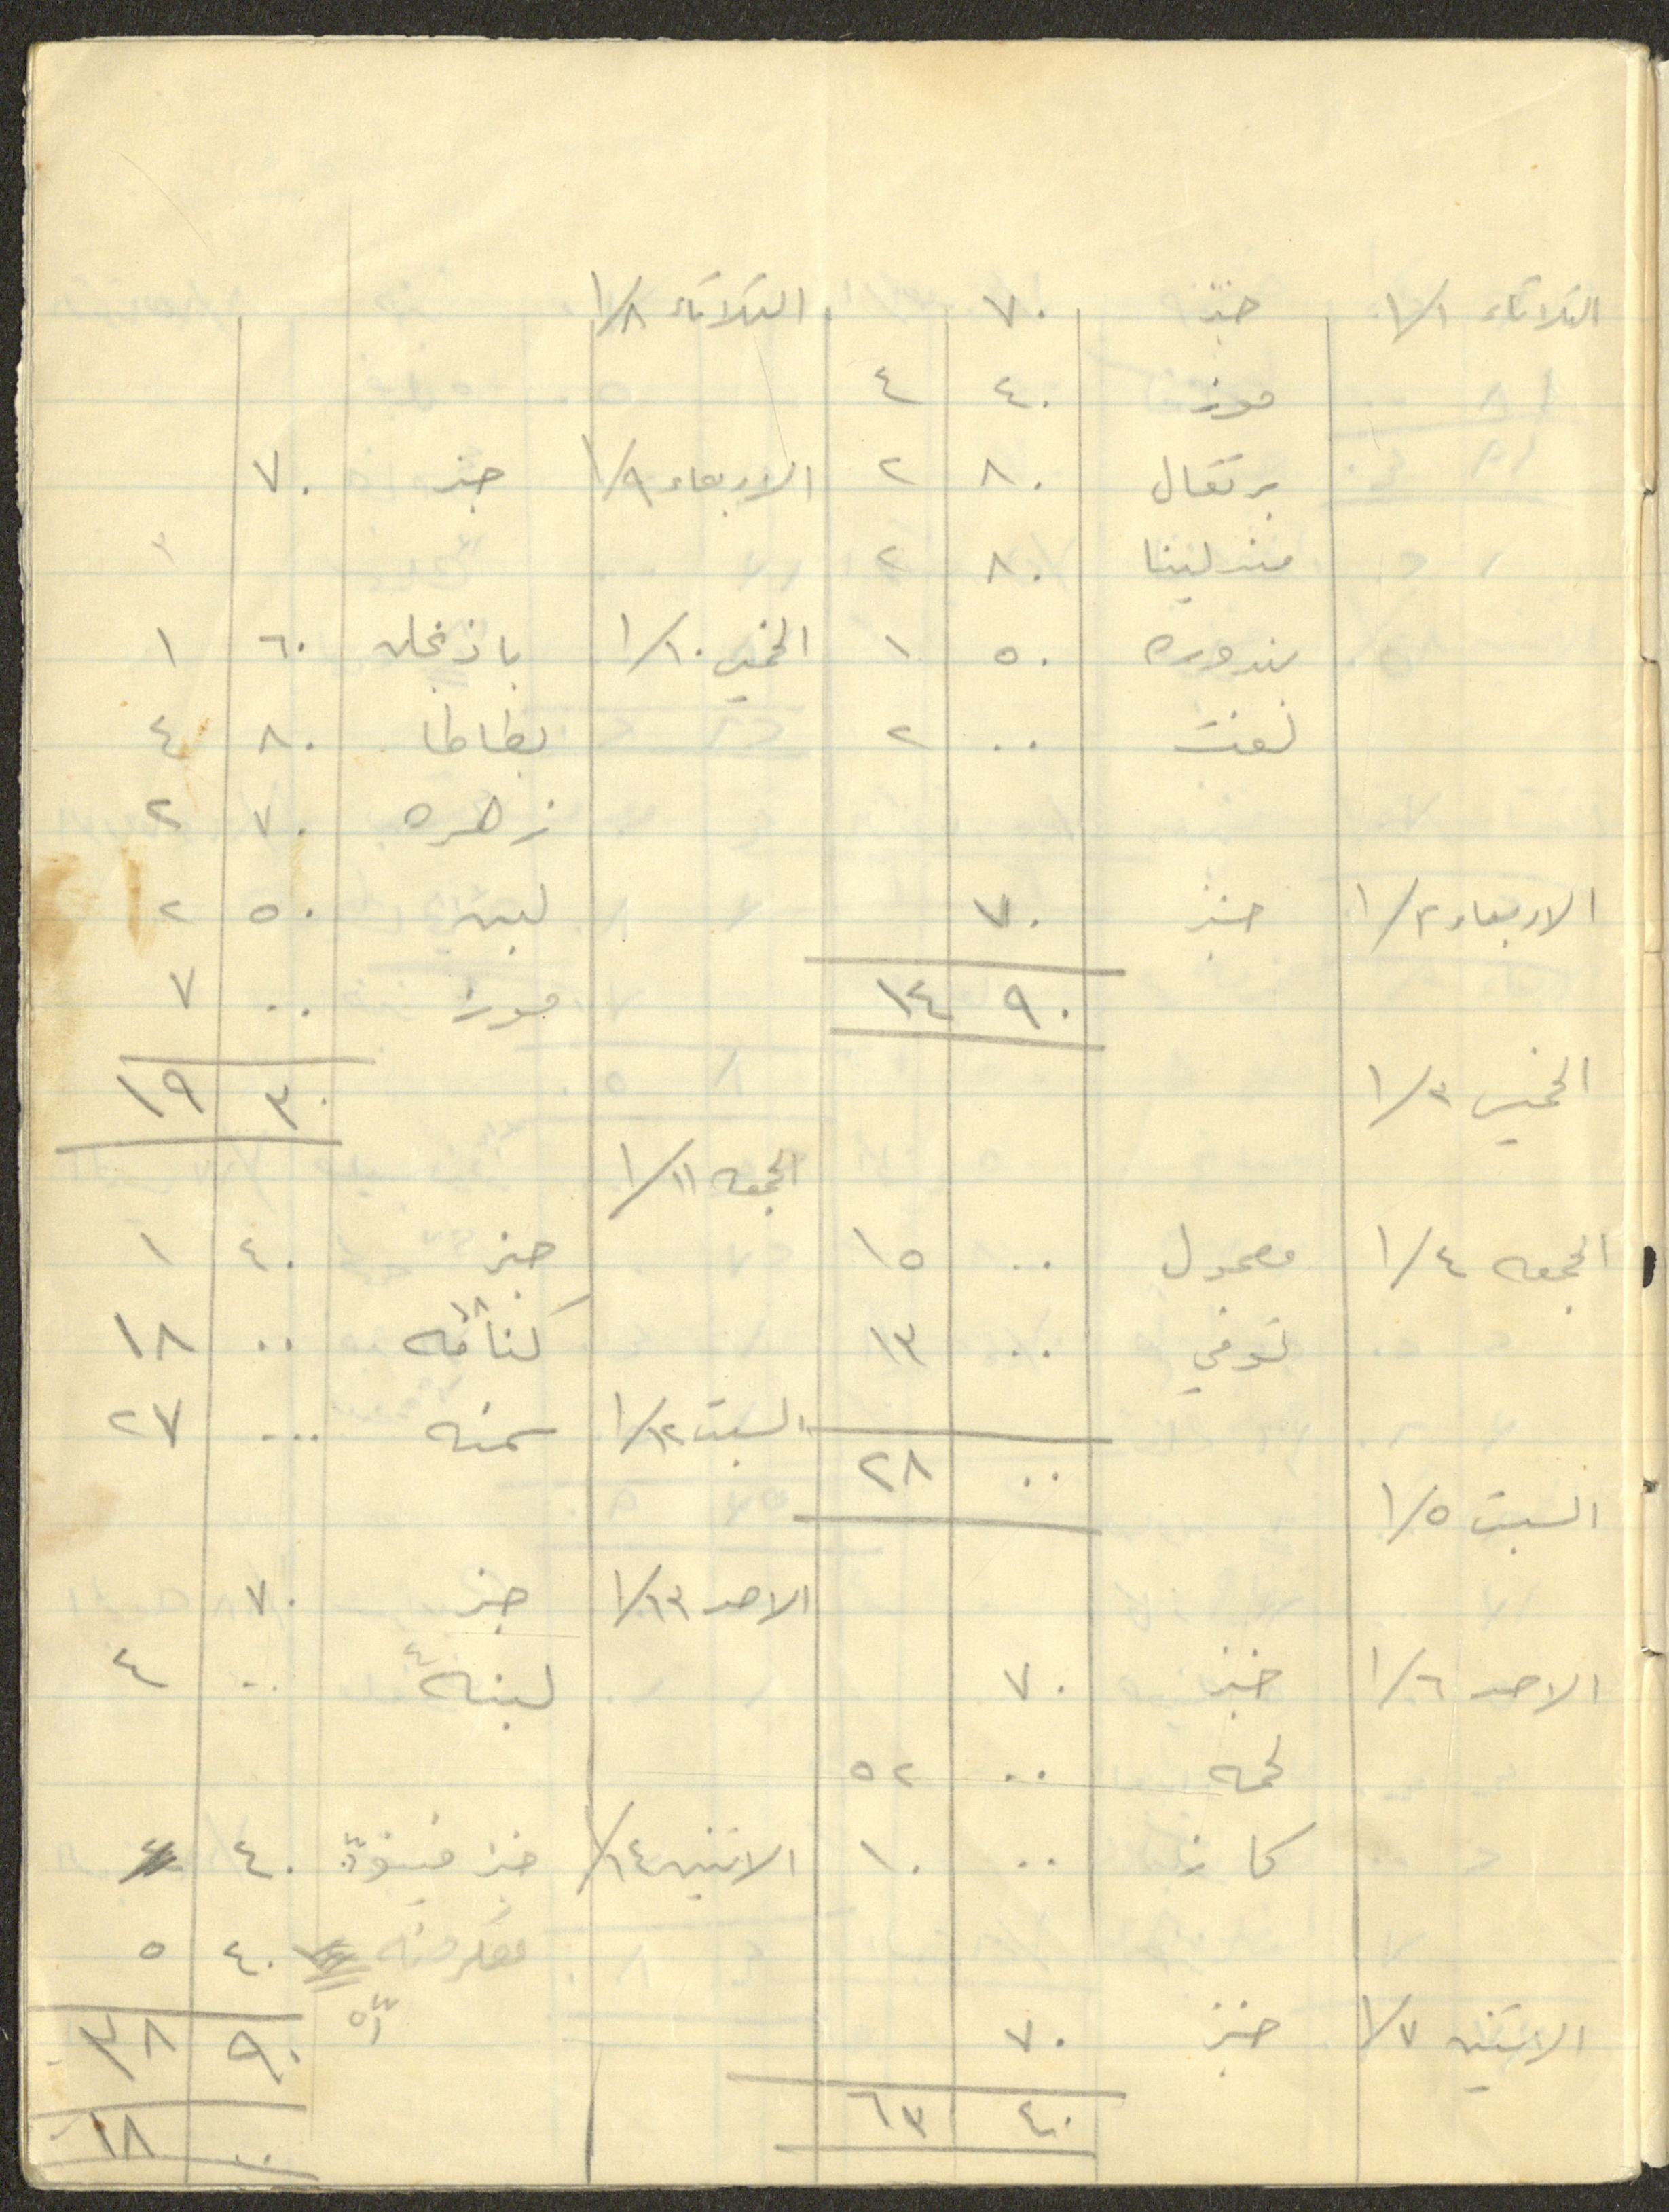 الثلاثاء ١/١ خبز ٧٠
موز ٤٠ ٤
برتقال ٨٠ ٢
مندلينا ٨٠ ٢
بندوره ٥٠ ١
لفت ٠٠ ٢
الاربعاء ١/٢ خبز ٧٠
٩٠ ١٤
الخميس ١/٣
الجمعه ١/٤ معمول ٠٠ ١٥
توفي ٠٠ ١٣
٠٠ ٢٨
السبت ١/٥
الاحد ١/٦ خبز ٧٠
لحمه ٠٠ ٥٢
كاز ٠٠ ١٠
الاثنين ١/٧ خبز ٧٠
٤٠ ٦٣
الثلاثاء ١/٨
الاربعاء ١/٩ خبز ٧٠
الخميس ١/١٠ باذنجان ٦٠ ١
بطاطا ٨٠ ٤
زهره ٧٠ ٢
لبن ٥٠ ٢
موز ٠٠ ٧
٣٠ ١٩
الجمعه ١/١١
خبز ٤٠ ١
كنافه ١٨ ٠٠ ١٨
السبت ١/١٢ سمنه ٠٠٠ ٢٧
الاحد ١/١٣ خبز ٧٠
لبنه ٤ ٠٠ ٤
الاثنين ١/١٤ خبز ٤٠
٤٠ ٥
٩٠ ٣٨
٠٠ ١٨